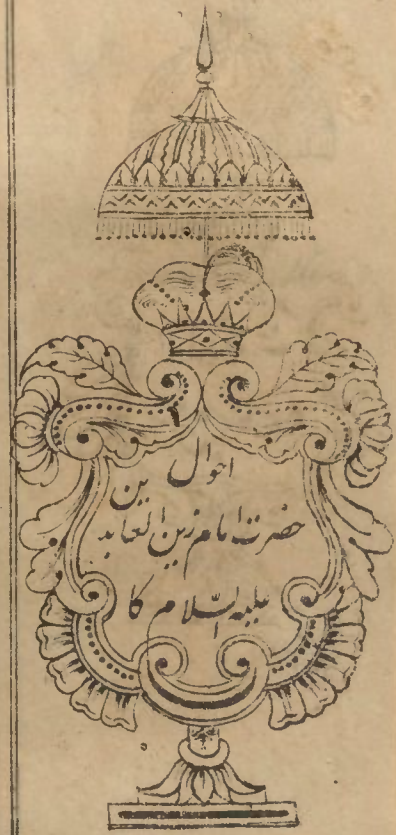 احوال
حضرت امام زین العابدین
علیہ السّلام کا